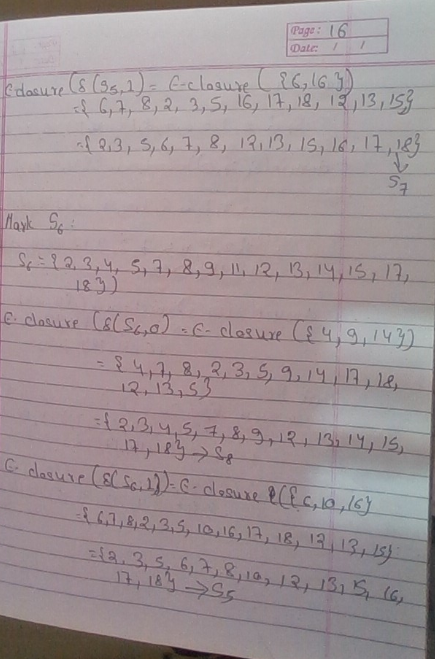 Page: 16
Date: / /
ε-closure (δ(S5,1) = ε-closure ({6,16})
= { 6, 7, 8, 2, 3, 5, 16, 17, 18, 12, 13, 15}
= {2,3, 5, 6, 7, 8, 12, 13, 15, 16, 17, 18}
↓
S7
Mark S6:
S6 = {2, 3, 4, 5, 7, 8, 9, 11, 12, 13, 14, 15, 17,
18})
ε-closure (δ(S6,0) = ε-closure ({4, 9, 14})
= { 4, 7, 8, 2, 3, 5, 9, 14, 17, 18,
12, 13, 5}
= {2, 3, 4, 5, 7, 8, 9, 12, 13, 14, 15,
17, 18} → S8
ε-closure (δ(S6,1)) = ε-closure ({6, 10, 16}
= {6, 7, 8, 2, 3, 5, 10, 16, 17, 18, 12, 13, 15}
= {2, 3, 5, 6, 7, 8, 10, 12, 13, 15, 16,
17, 18} → S5